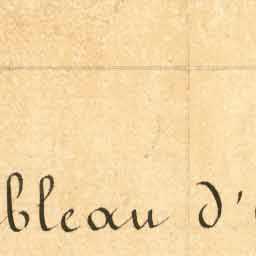 bleau d'